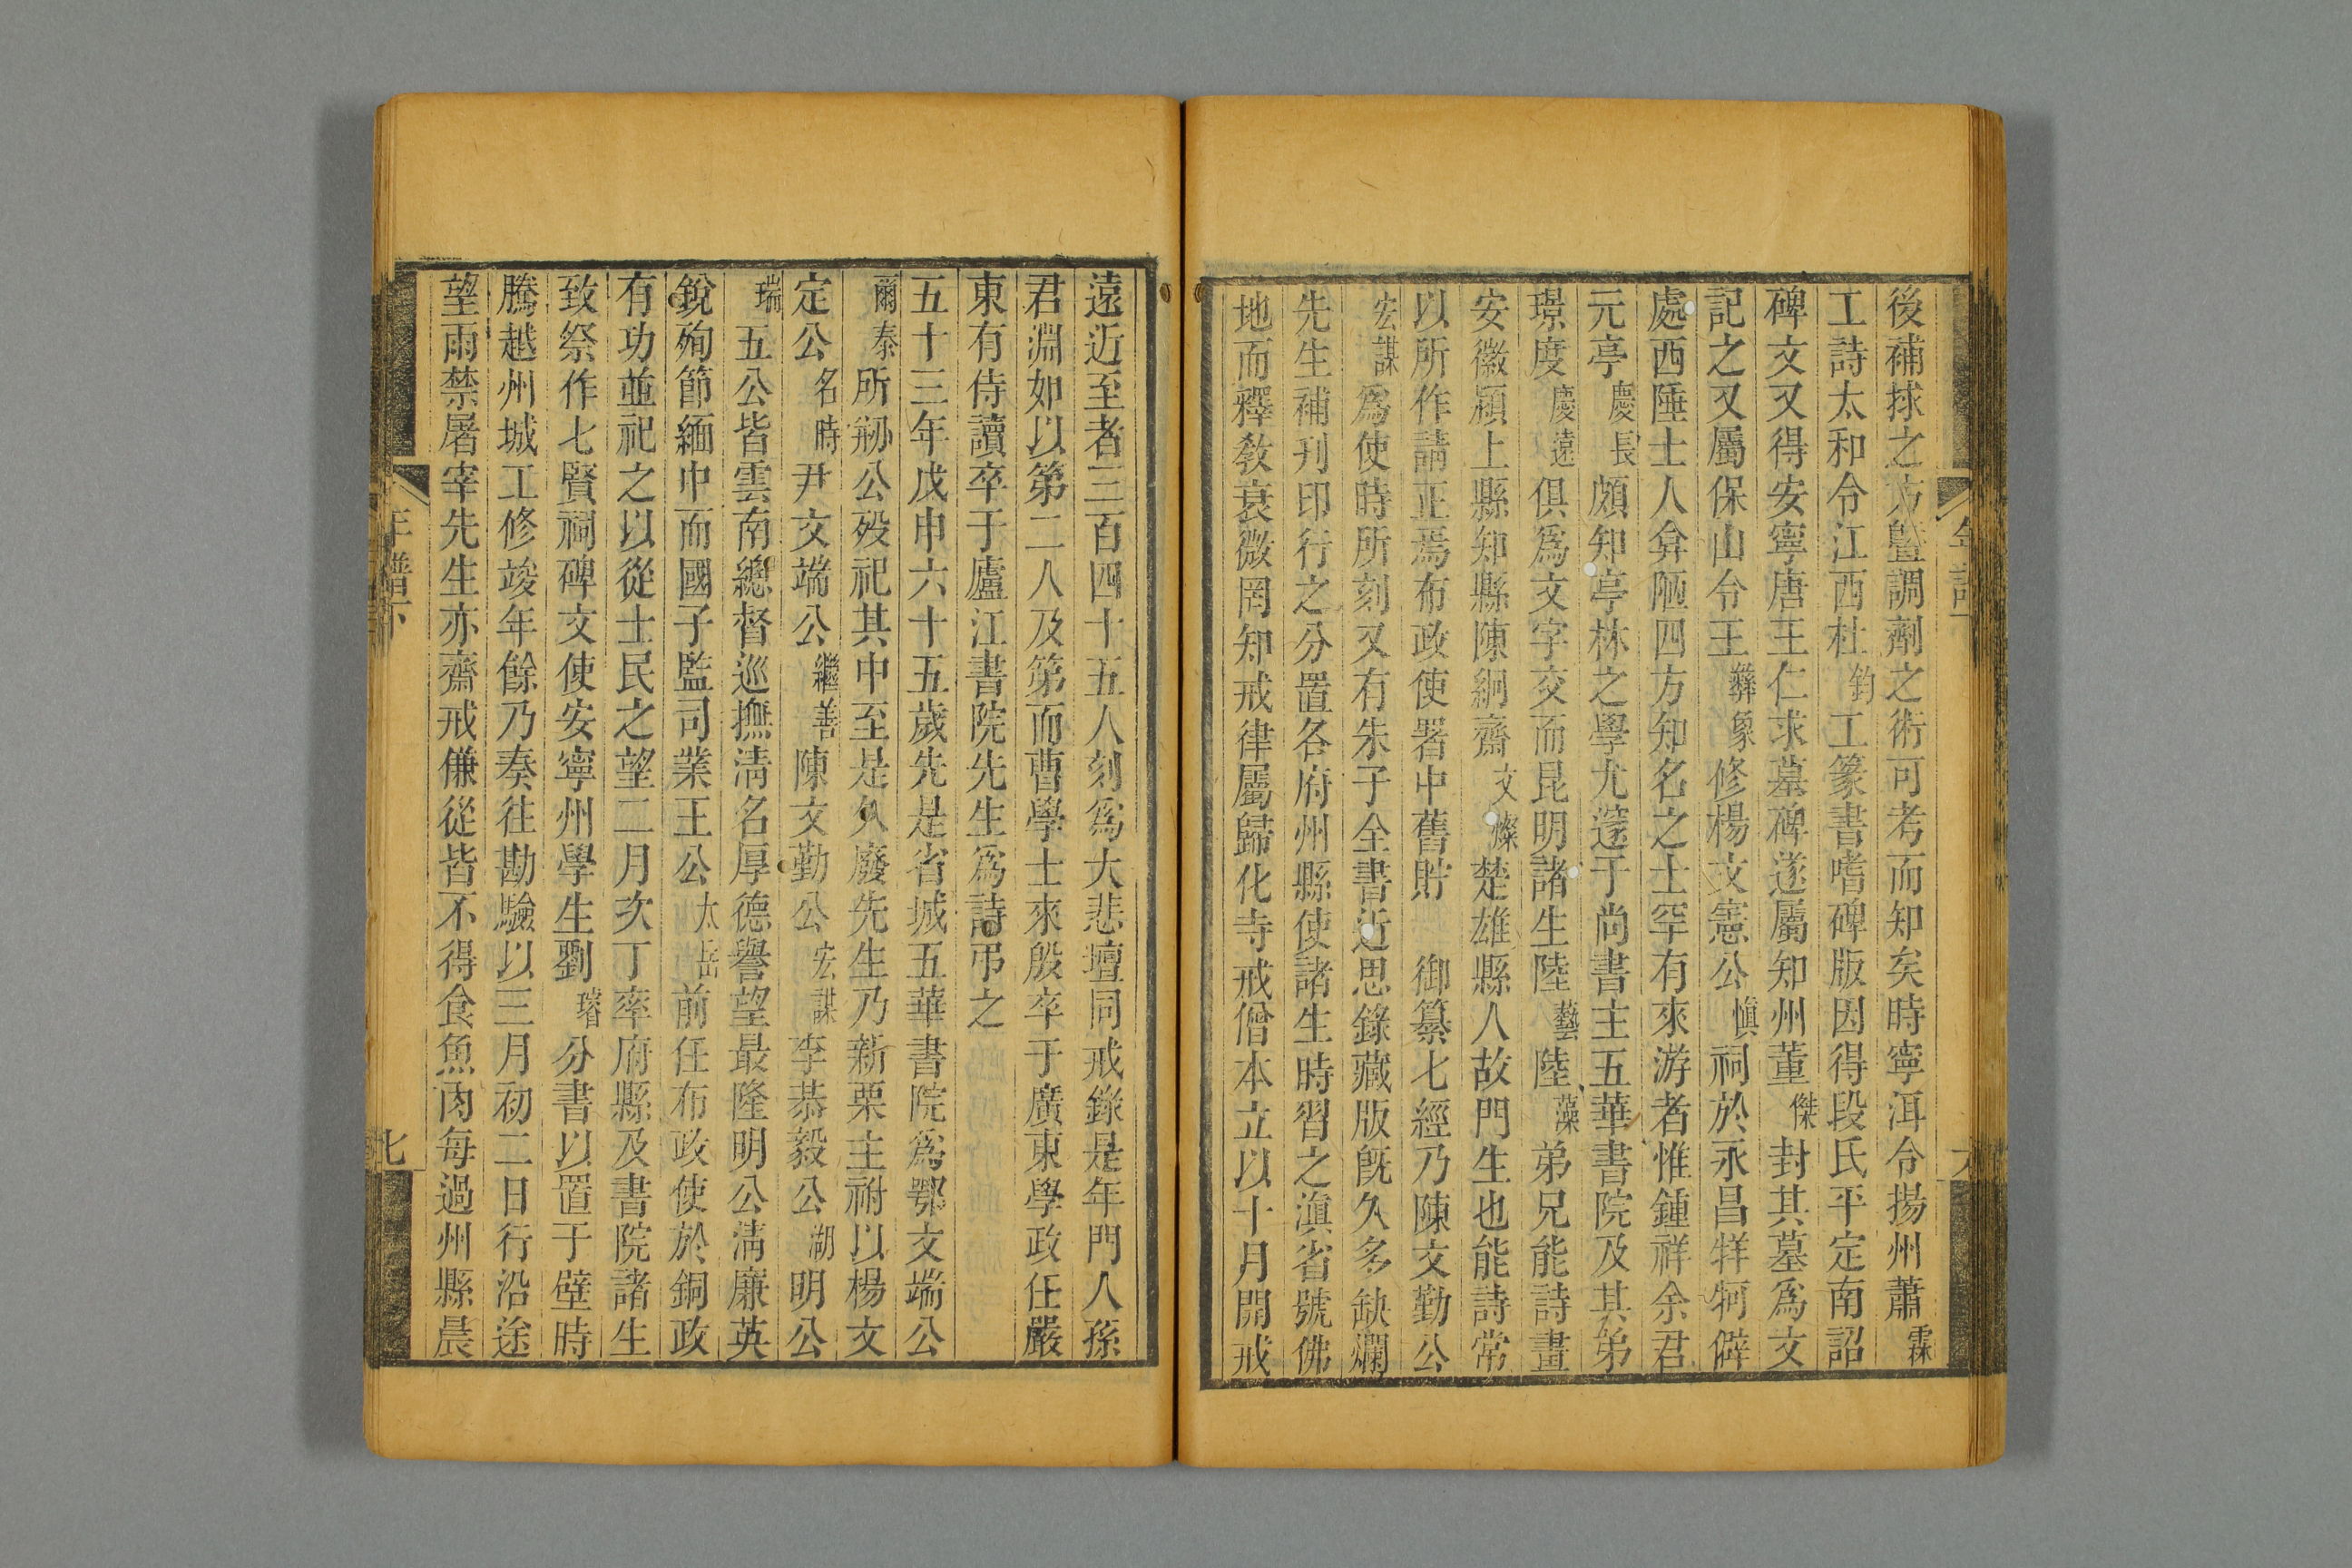 後補捄之方曁調劑之術可考而知矣時寧洱令揚州蕭霖
工詩太和令江西杜鈞工篆書嗜碑版因得段氏平定南詔
碑文又得安寧唐王仁求墓碑遂屬知州董傑封其墓爲文
記之又屬保山令王彝象修楊文憲公愼祠於永昌牂牁僻
處西陲士人弇陋四方知名之士罕有來游者惟鍾祥余君
元亭慶長頗知亭林之學尤邃于尚書主五華書院及其弟
璟度慶遠俱爲文字交而昆明諸生陸藝陸藻弟兄能詩畫
安徽潁上縣知縣陳絅齋文燦楚雄縣人故門生也能詩常
以所作請正焉布政使署中舊貯 御纂七經乃陳文勤公
宏謀爲使時所刻又有朱子全書近思錄藏版旣久多缺爛
先生補刊印行之分置各府州縣使諸生時習之滇省號佛
地而釋教衰微罔知戒律屬歸化寺戒僧本立以十月開戒
遠近至者三百四十五人刻爲大悲壇同戒錄是年門人孫
君淵如以第二人及第而曹學士來殷卒于廣東學政任嚴
東有侍讀卒于廬江書院先生爲詩弔之
五十三年戊申六十五歲先是省城五華書院爲鄂文端公
爾泰所剏公歿祀其中至是久廢先生乃新栗主祔以楊文
定公名時尹文端公繼善陳文勤公宏謀李恭毅公湖明公
瑞五公皆雲南總督巡撫淸名厚德譽望最隆明公淸廉英
銳殉節緬中而國子監司業王公太岳前任布政使於銅政
有功並祀之以從士民之望二月次丁率府縣及書院諸生
致祭作七賢祠碑文使安寧州學生劉瑢分書以置于壁時
騰越州城工修竣年餘乃奏往勘驗以三月初二日行沿途
望雨禁屠宰先生亦齋戒傔從皆不得食魚肉每過州縣晨
年譜下
七